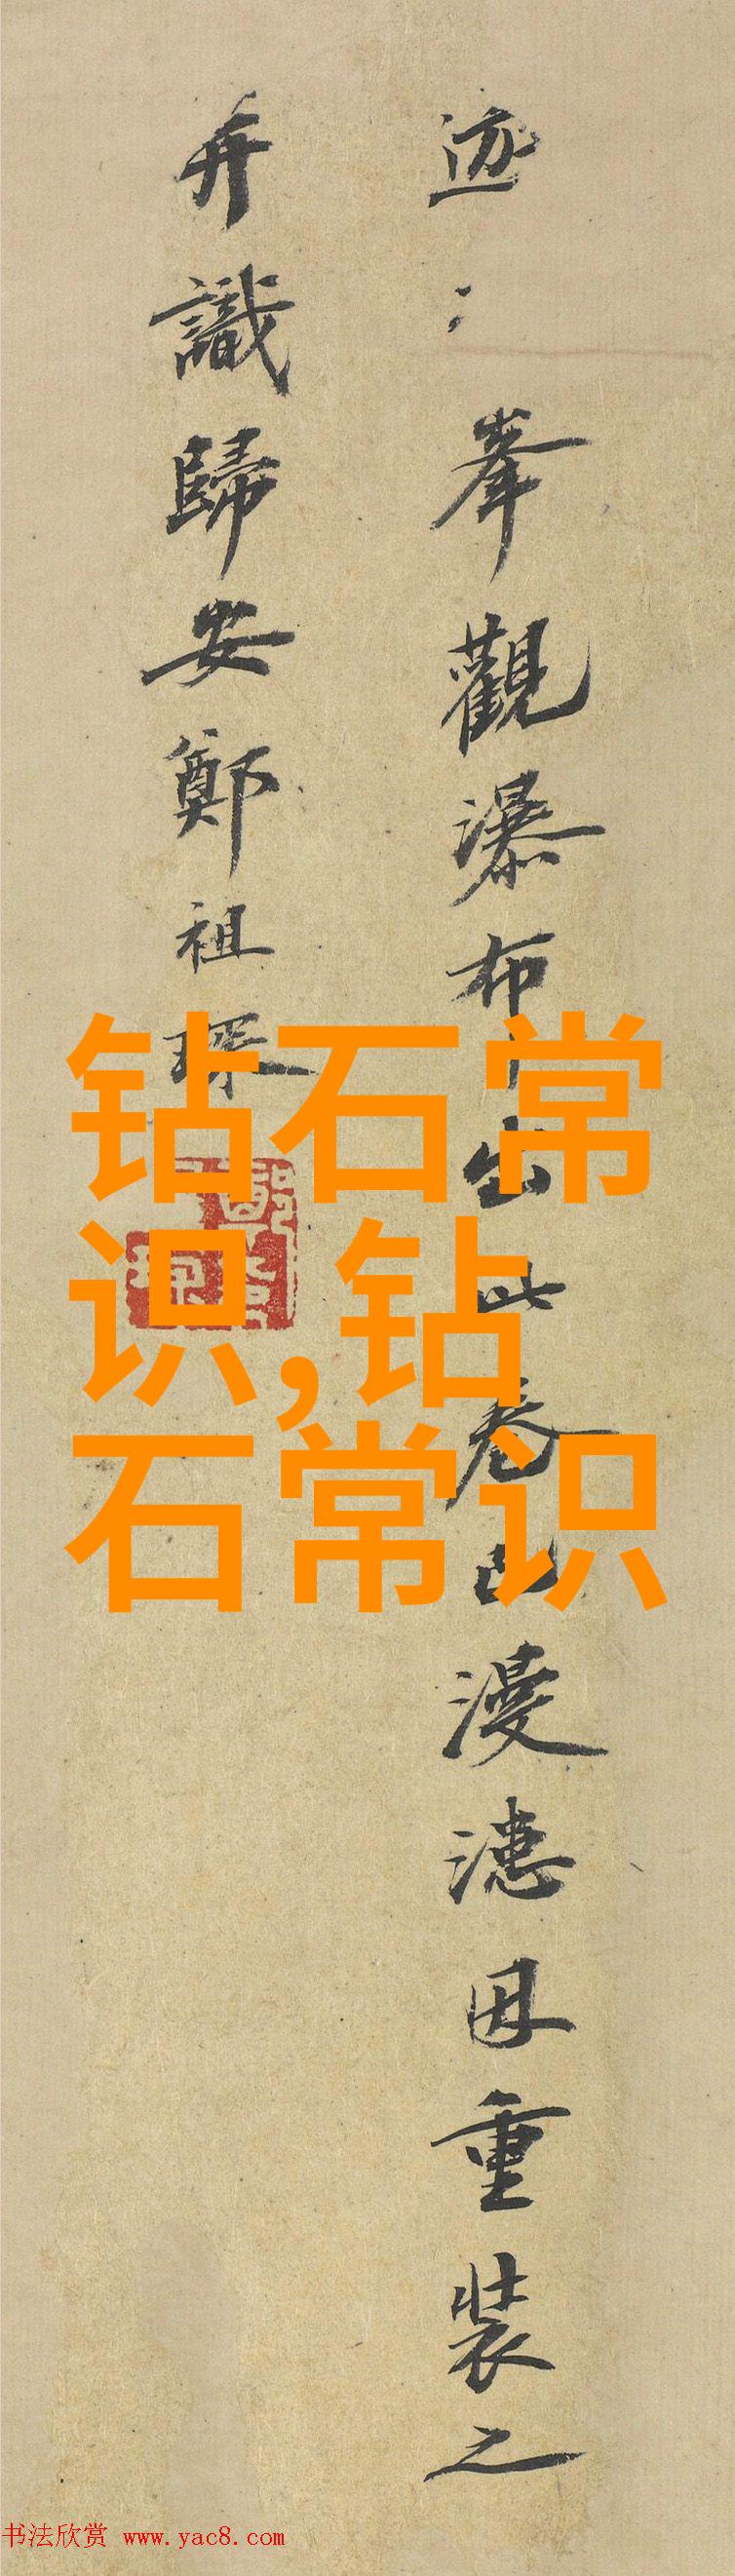 迹〻峯觀瀑布
出此卷已漫漶因重裝之
并識歸安鄭祖琛
钻石常
识,钻
石常识
书法欣赏 www.yac8.com